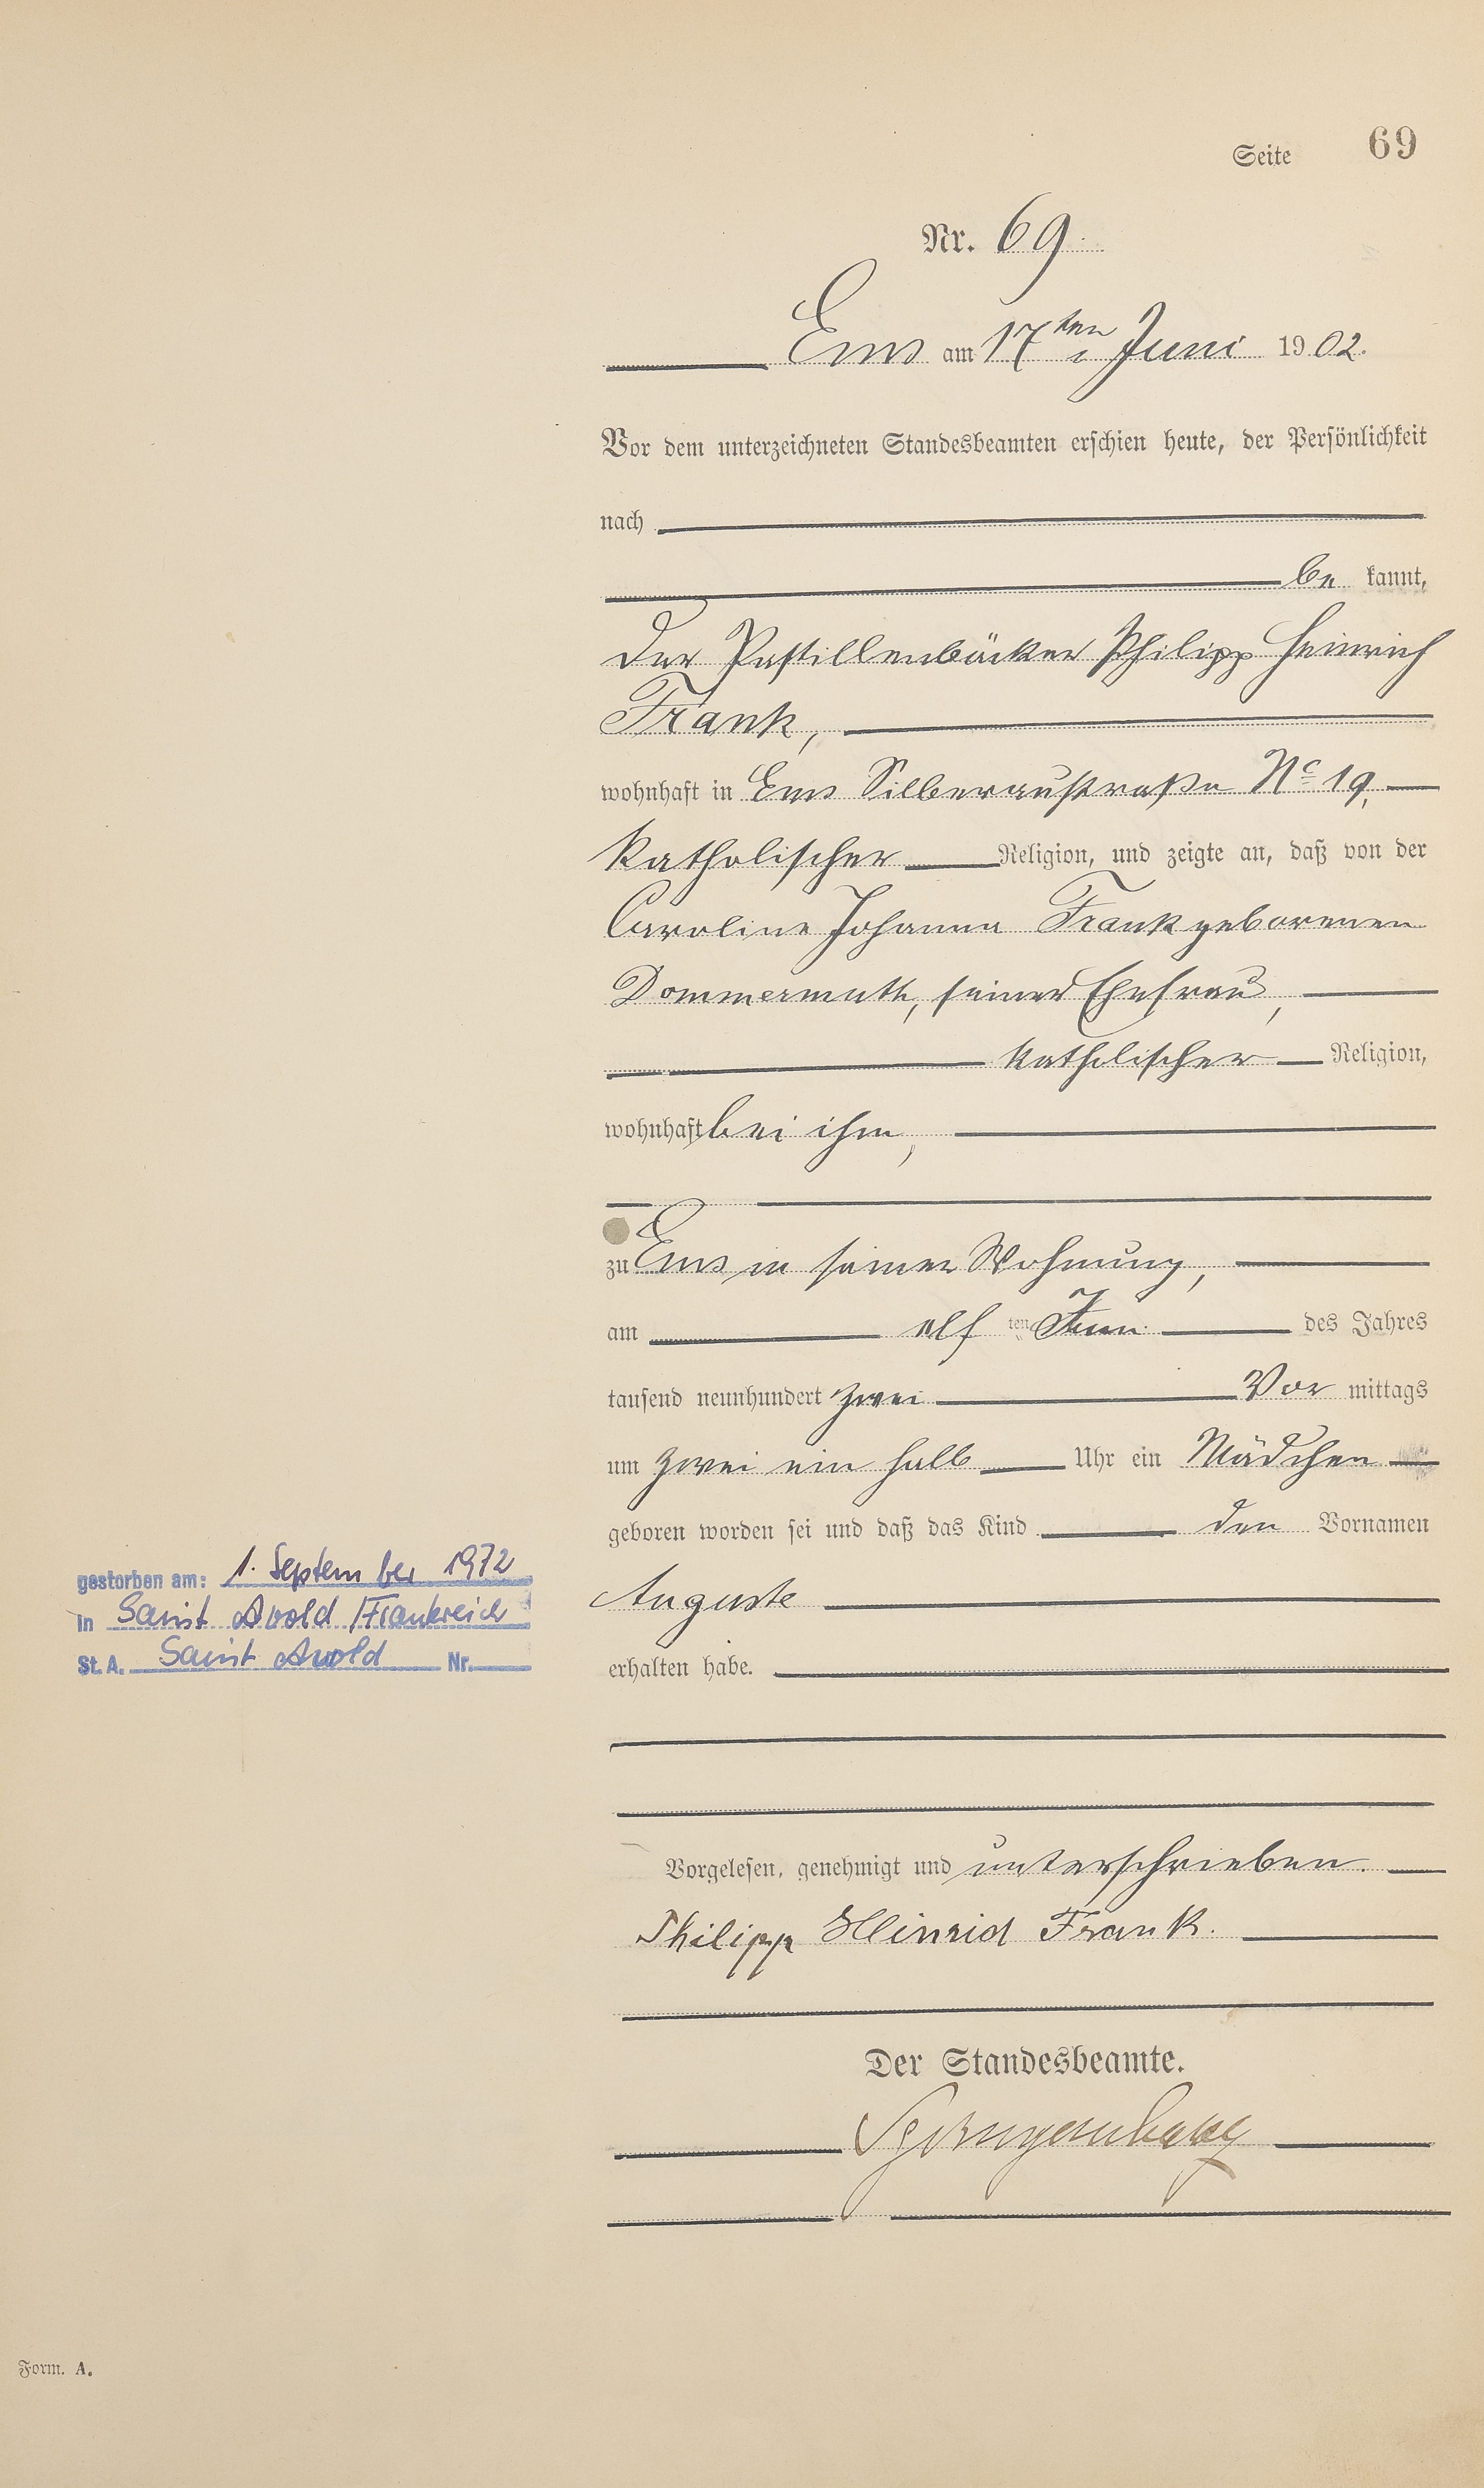 Seite 69
Nr. 69.
Ems am 17ten Juni 1902.
Vor dem unterzeichneten Standesbeamten erschien heute, der Persönlichkeit
nach
be kannt,
der Pastillenbäcker Philipp Heinrich
Frank,
wohnhaft in Ems Silberaustraße No 19,
katholischer Religion, und zeigte an, daß von der
Caroline Johanna Frank geborenen
Dommermuth, seiner Ehefrau,
katholischer Religion,
wohnhaft bei ihm,
zu Ems in seiner Wohnung,
am elf ten Juni des Jahres
tausend neunhundert zwei Vor mittags
um zwei ein halb Uhr ein Mädchen
geboren worden sei und daß das Kind den Vornamen
Auguste
erhalten habe.
gestorben am: 1. September 1972
in Saint Avold /Frankreich
St. A. Saint Avold Nr.
Vorgelesen, genehmigt und unterschrieben.
Philipp Heinrich Frank.
Der Standesbeamte.
Form. A.